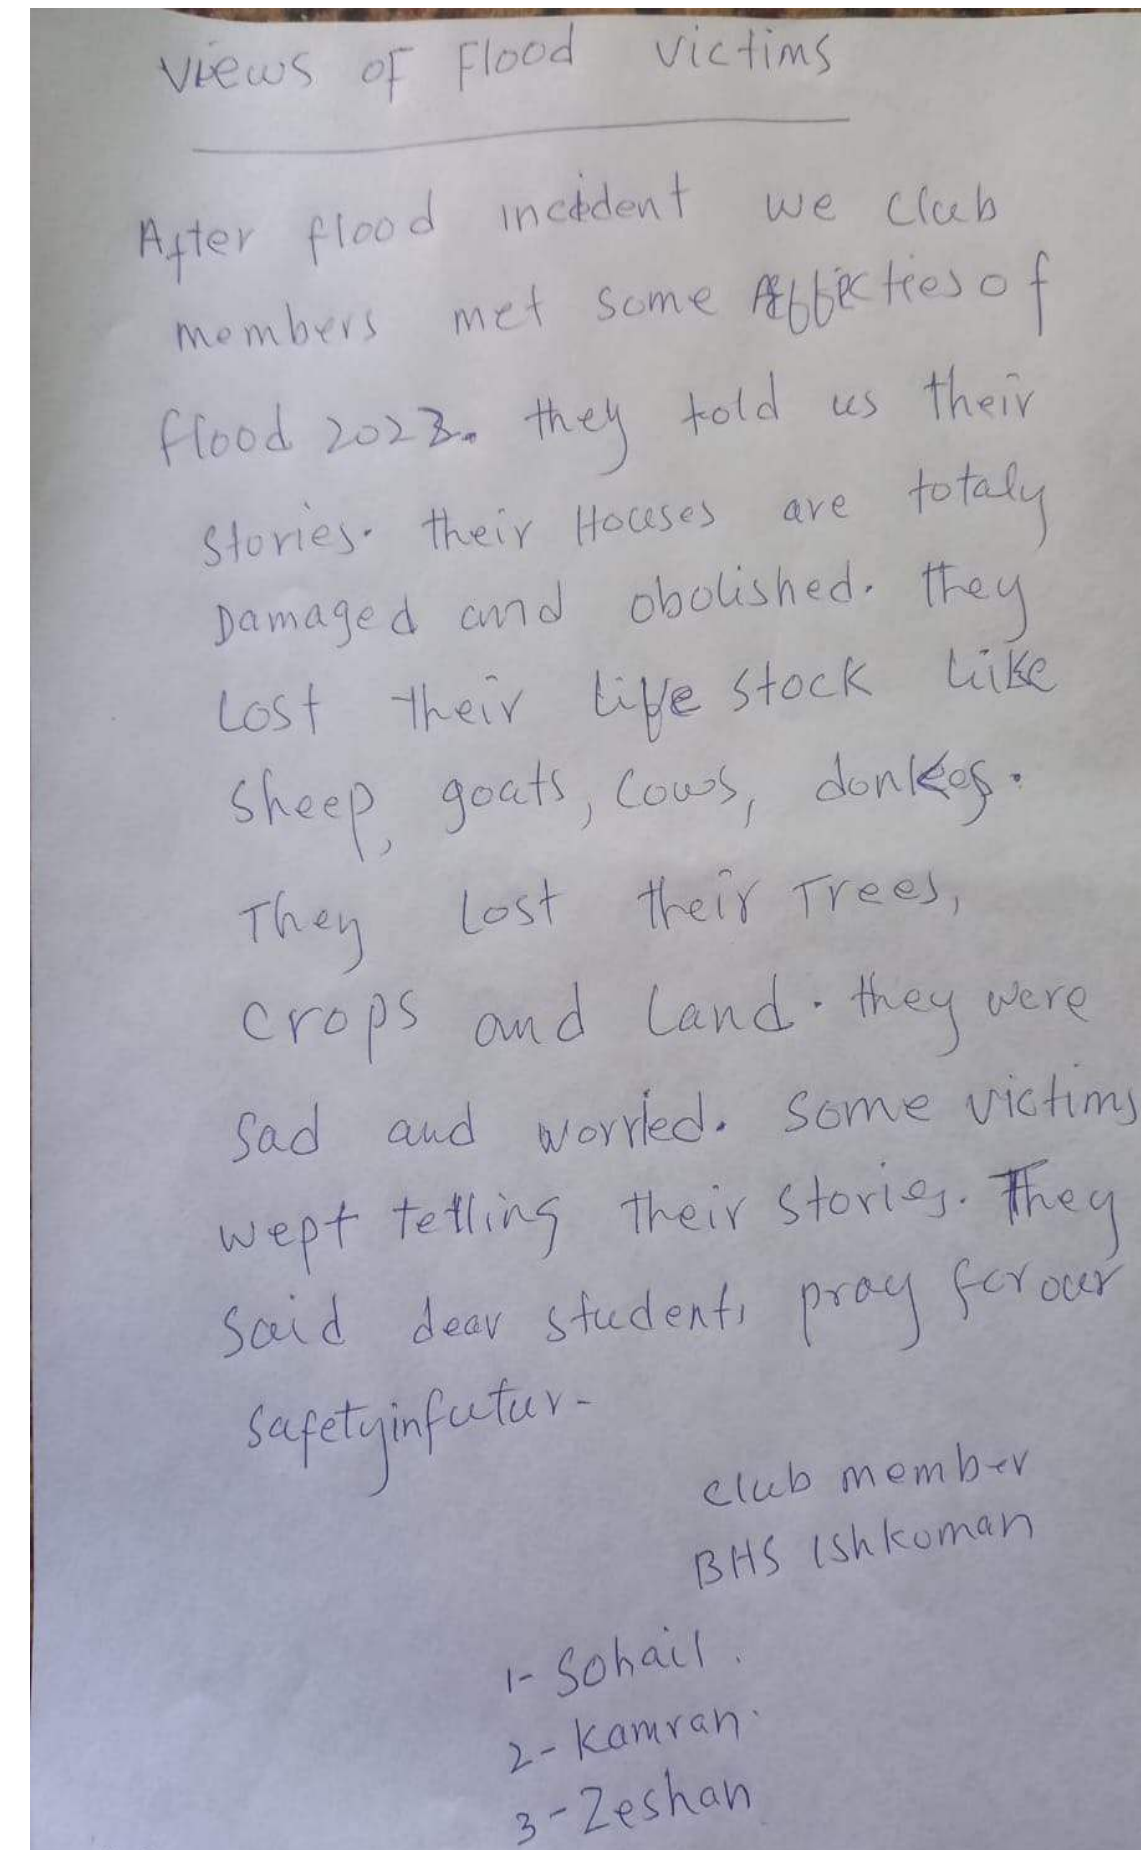 Views of Flood victims
After flood incident we club
members met some Affecties of
flood 2023. they told us their
stories. their Houses are totaly
Damaged and obolished. they
Lost their life stock like
sheep, goats, cows, donkes.
They Lost their Trees,
crops and land. they were
sad and worried. some victims
wept telling their stories. They
said dear students pray for our
safetyinfutur-
club member
BHS Ishkoman
1- Sohail.
2- Kamran.
3- Zeshan